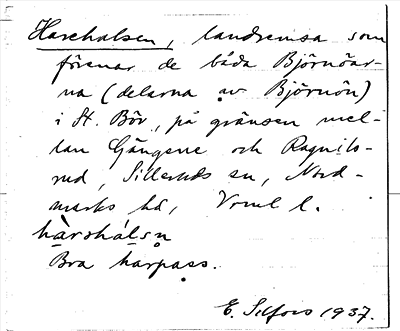 Harehalsen, landremsa som
förenar de båda Björnöar-
na (delarna av Björnön)
i St. Bör, på gränsen mel-
lan Gängene och Ragnils-
rud, Silleruds sn, Nord-
marks hd, Vrml l.
hàrshálsn
Bra harpass.
E. Silfors 1937.